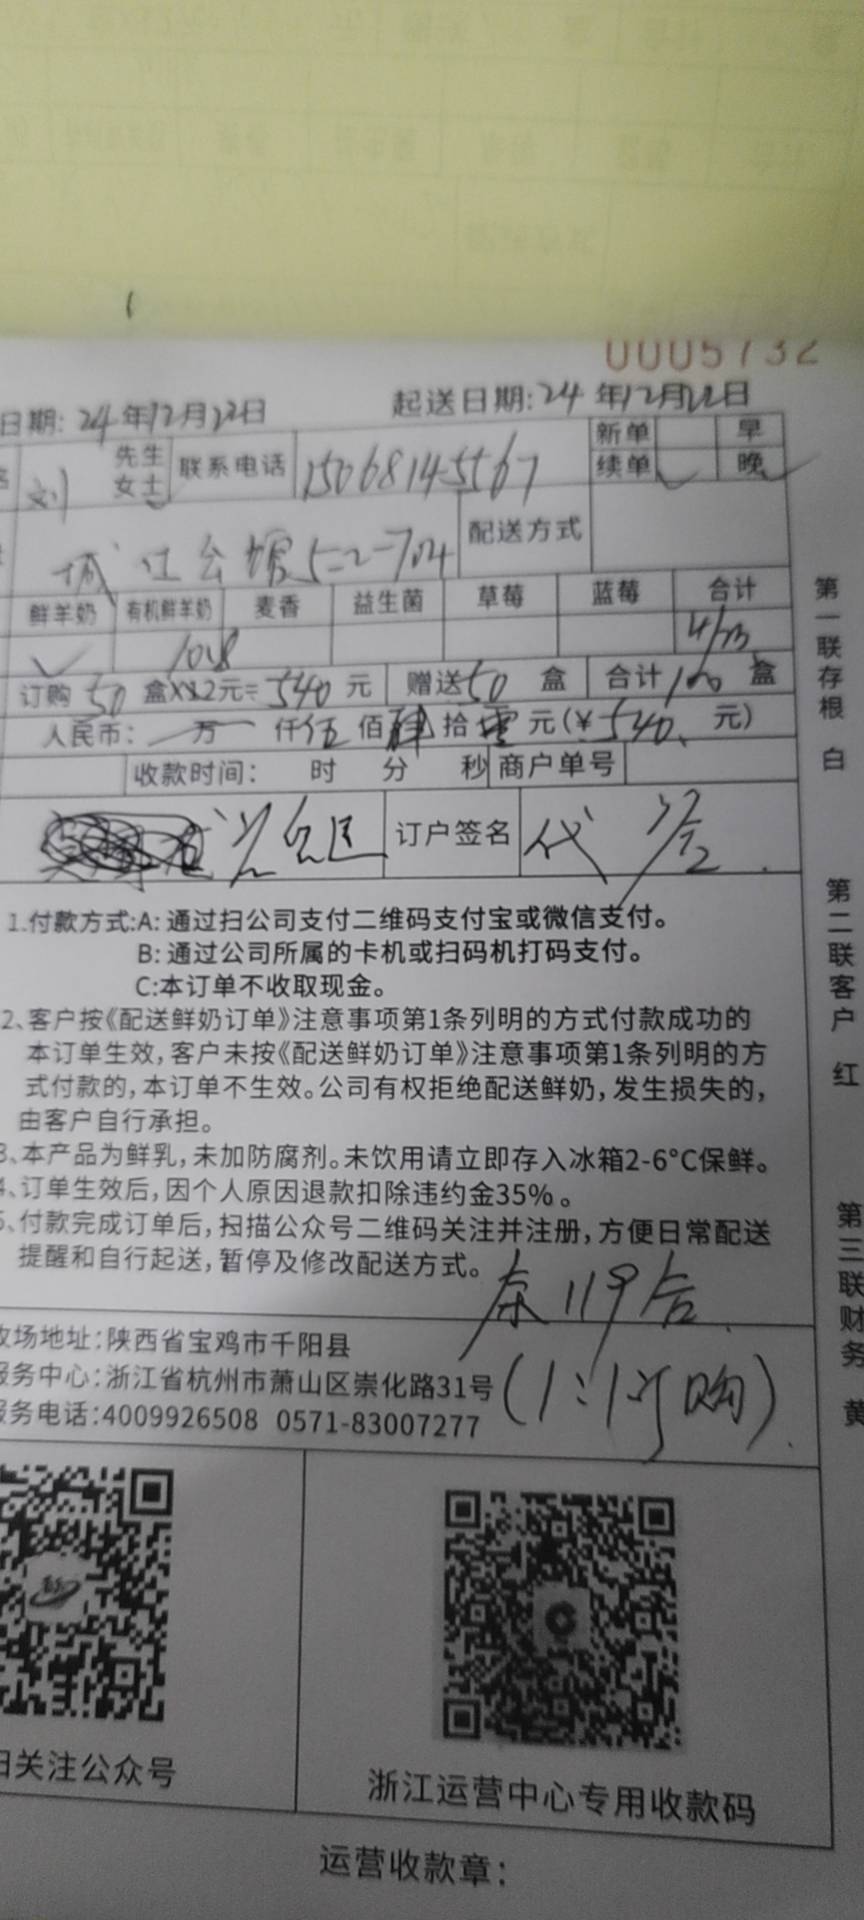 0005732
日期: 24年12月22日 起送日期: 24年12月22日
刘 先生 女士 联系电话 15068145567 新单 早
续单 ✓ 晚 ✓
5-2-704 配送方式
鲜羊奶 有机鲜羊奶 麦香 益生菌 草莓 蓝莓 合计
✓
订购 50 盒X 元= 540 元 赠送 50 盒 合计 100 盒
人民币: 万 仟 伍 佰 肆 拾 零 元(¥ 540. 元)
收款时间: 时 分 秒 商户单号
订户签名 代
1.付款方式:A: 通过扫公司支付二维码支付宝或微信支付。
B: 通过公司所属的卡机或扫码机打码支付。
C:本订单不收取现金。
2、客户按《配送鲜奶订单》注意事项第1条列明的方式付款成功的
本订单生效,客户未按《配送鲜奶订单》注意事项第1条列明的方
式付款的,本订单不生效。公司有权拒绝配送鲜奶,发生损失的,
由客户自行承担。
3、本产品为鲜乳,未加防腐剂。未饮用请立即存入冰箱2-6°C保鲜。
4、订单生效后,因个人原因退款扣除违约金35%。
5、付款完成订单后,扫描公众号二维码关注并注册,方便日常配送
提醒和自行起送,暂停及修改配送方式。
余119合
牧场地址:陕西省宝鸡市千阳县
服务中心:浙江省杭州市萧山区崇化路31号
(1:1订购)
服务电话:4009926508 0571-83007277
扫关注公众号
浙江运营中心专用收款码
运营收款章:
第一联存根 白
第二联客户 红
第三联财务 黄